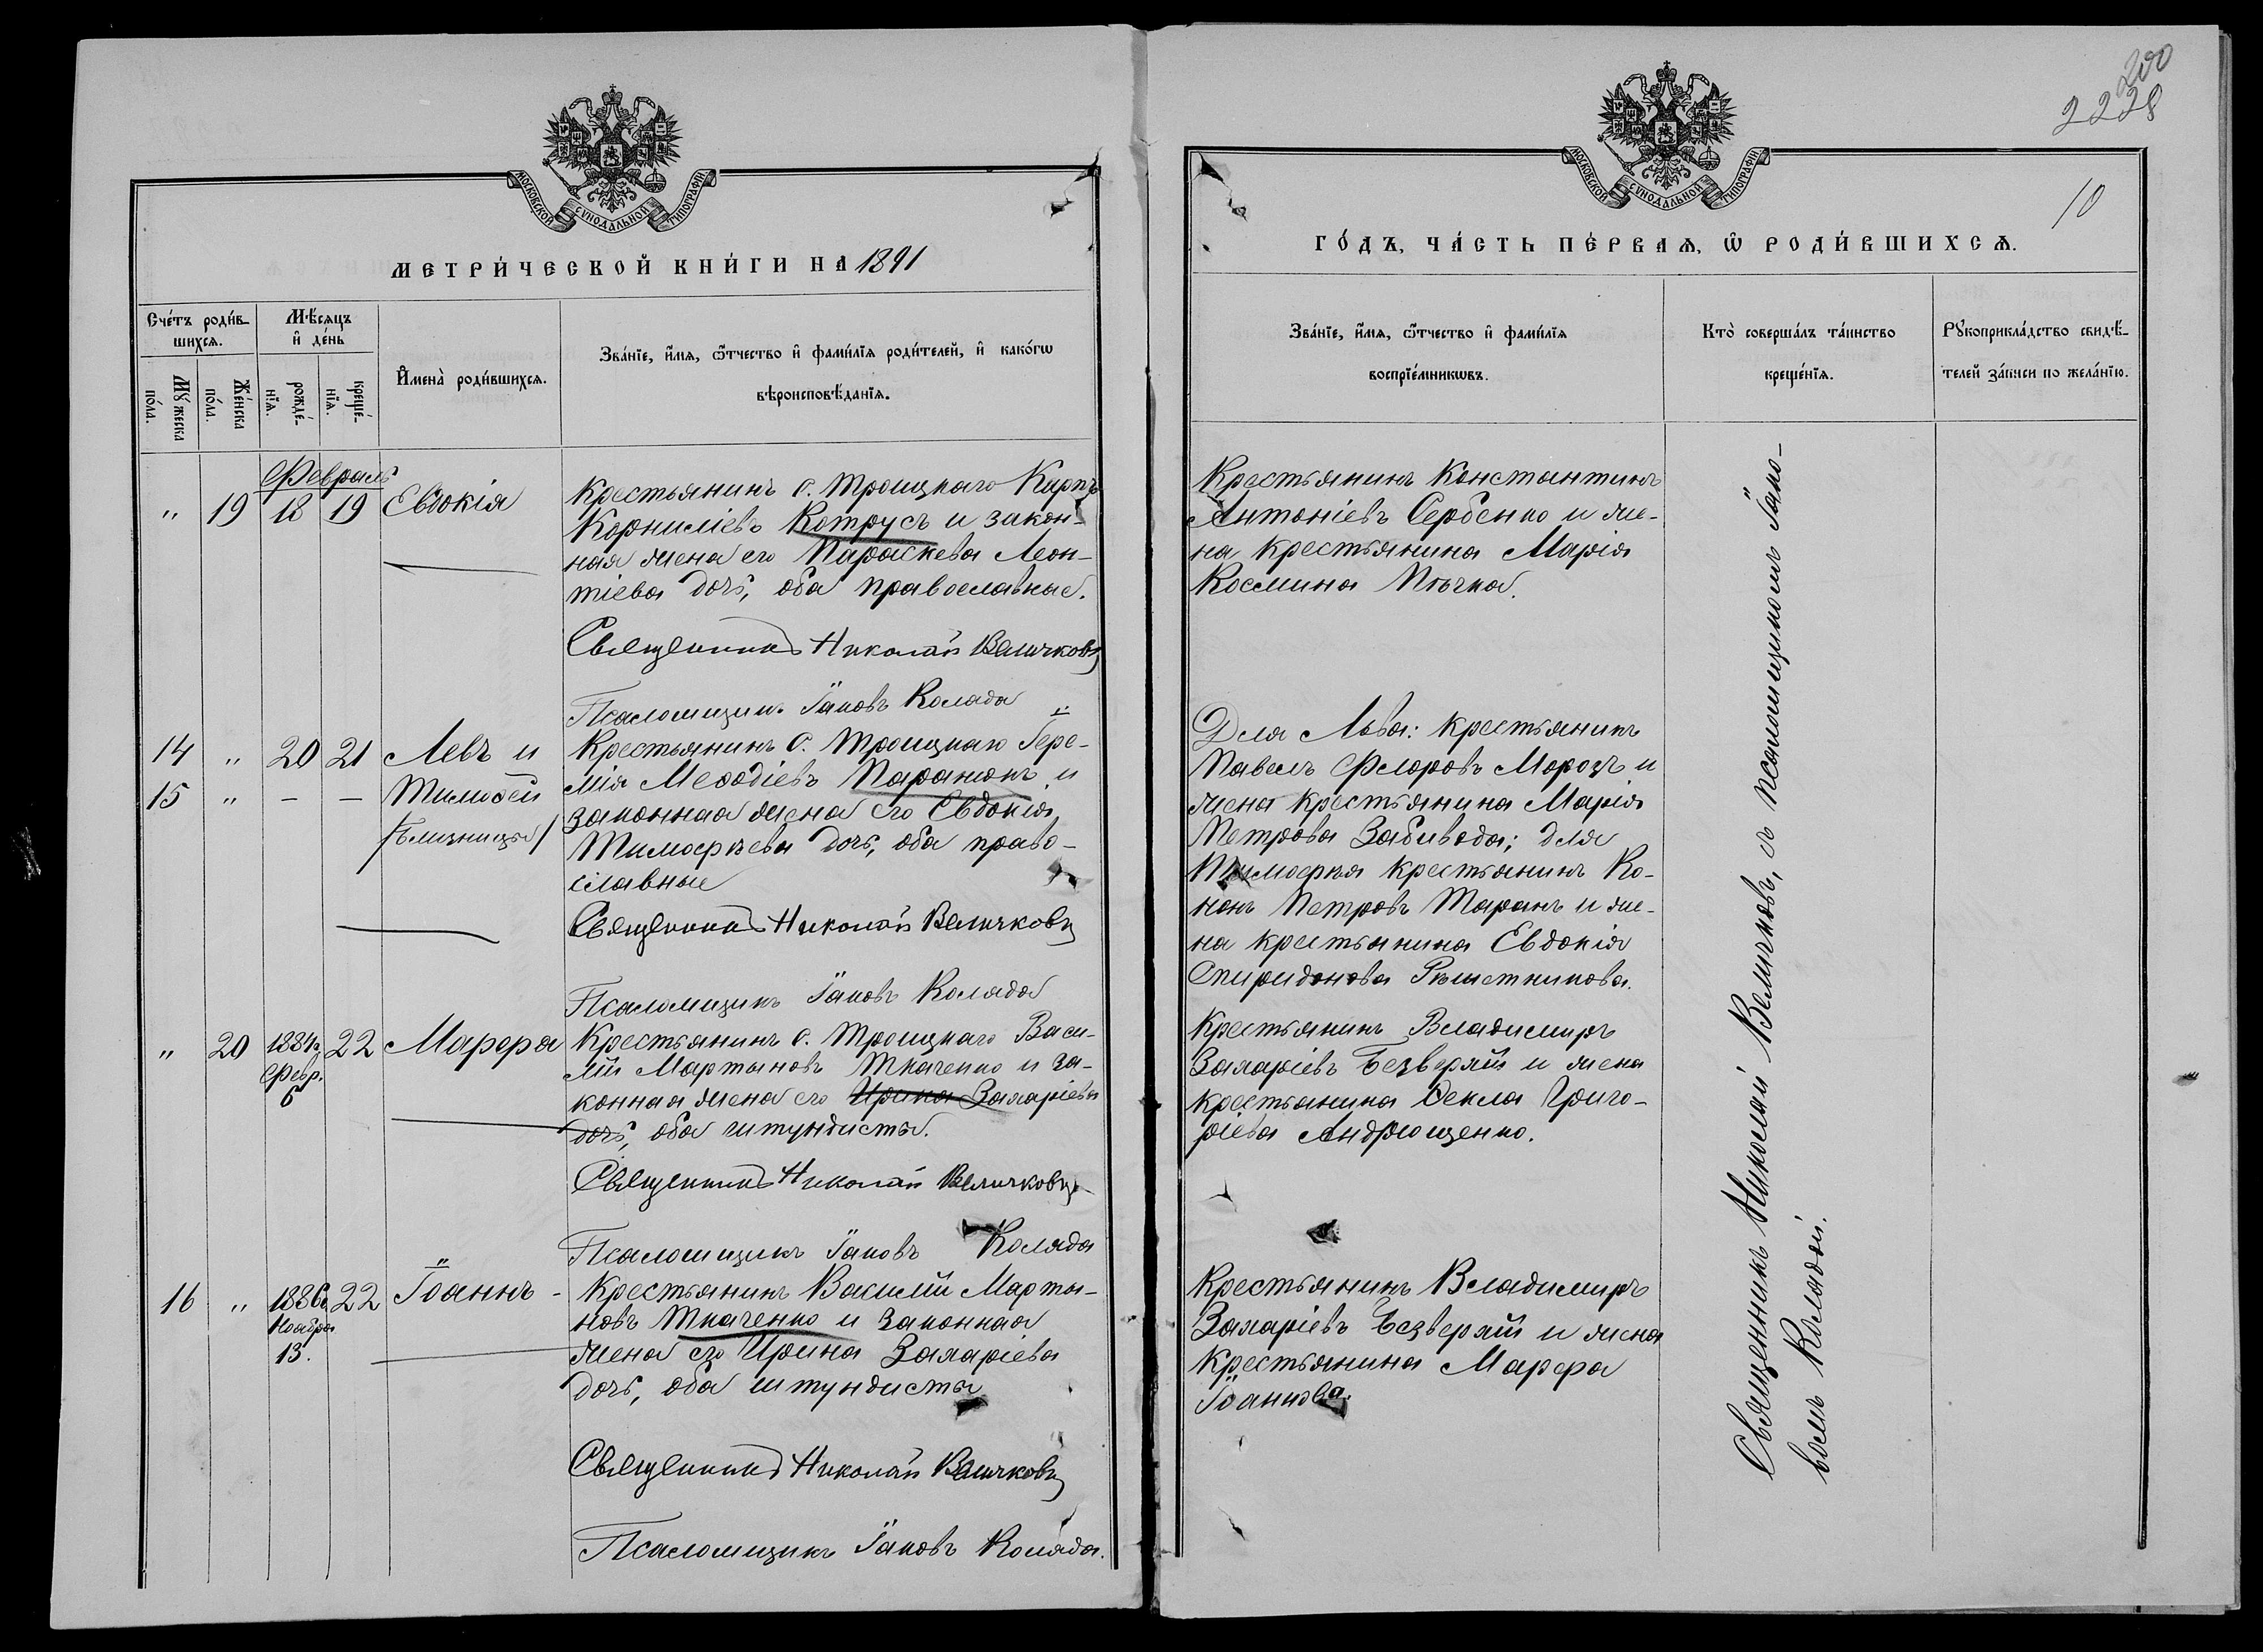 МОСКОВСКОЙ СѴНОДАЛЬНОЙ ТИПОГРАФІИ
МЕТРИ́ЧЕСКОЙ КНИ́ГИ НА 1891
Сче́тъ роди́в-
шихсѧ.
Мѣ́сѧцъ
и҆ де́нь
Мꙋ́жеска
по́ла.
Же́нска
по́ла.
рожде́-
нїѧ.
креще́-
нїѧ.
И҆мена̀ роди́вшихсѧ.
Зва́нїе, и҆́мѧ, ѻ҆́тчество и҆ фами́лїѧ роди́телей, и҆ како́гѡ
вѣроисповѣ́данїѧ.
Февраль
" 19 18 19 Евдокія
Крестьянинъ с. Троицкаго Карпъ
Корниліевъ Котрусъ и закон-
ная жена его Параскева Леон-
тіева дочь, оба православные.
Священникъ Николай Величковъ
Псаломщикъ Іаковъ Коляда
14 " 20 21 Левъ и
15 " – – Тимоѳей
/близнецы/
Крестьянинъ с. Троицкаго Іере-
мія Меѳодіевъ Парамонъ и
законная жена его Евдокія
Тимоѳеева дочь, оба право-
славные
Священникъ Николай Величковъ
Псаломщикъ Іаковъ Коляда
" 20 1884 г. Февр. 6 22 Марѳа
Крестьянинъ с. Троицкаго Васи-
лій Мартыновъ Ткаченко и за-
конная жена его Ирина Захаріева
дочь, оба штундисты.
Священникъ Николай Величковъ
Псаломщикъ Іаковъ Коляда
16 " 1886 г. Ноября 13. 22 Іоаннъ -
Крестьянинъ Василій Марты-
новъ Ткаченко и законная
жена его Ирина Захаріева
дочь, оба штундисты
Священникъ Николай Величковъ
Псаломщикъ Іаковъ Коляда.
200
2228
10
МОСКОВСКОЙ СѴНОДАЛЬНОЙ ТИПОГРАФІИ
ГО́ДЪ, ЧА́СТЬ ПЕ́РВАѦ, Ѡ҆ РОДИ́ВШИХСѦ.
Зва́нїе, и҆́мѧ, ѻ҆́тчество и҆ фами́лїѧ
воспрїе́мникѡвъ.
Кто̀ соверша́лъ та́инство
креще́нїѧ.
Рꙋкоприкла́дство свидѣ́-
телей за́писи по жела́нїю.
Крестьянинъ Константинъ
Антоніевъ Сербенко и же-
на крестьянина Марія
Космина Пѣчка.
Для Льва: крестьянинъ
Павелъ Флоровъ Морозъ и
жена крестьянина Марія
Петрова Забивода; для
Тимоѳея крестьянинъ Ко-
нонъ Петровъ Таранъ и же-
на крестьянина Евдокія
Спиридонова Рѣшетникова.
Крестьянинъ Владимиръ
Захаріевъ Безверхій и жена
крестьянина Ѳекла Григо-
ріева Андрющенко.
Крестьянинъ Владимиръ
Захаріевъ Безверхій и жена
крестьянина Марѳа
Іоаннова.
Священникъ Николай Величковъ, съ псаломщикомъ Іако-
вомъ Колядой.